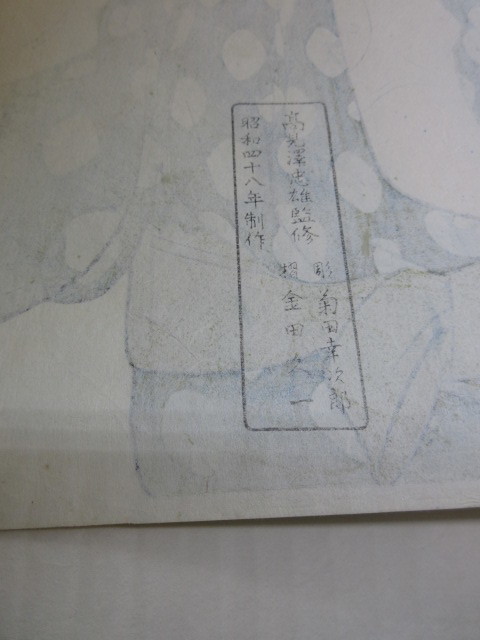 高見澤忠雄監修
彫 菊田幸次郎
摺 金田 一
昭和四十八年制作